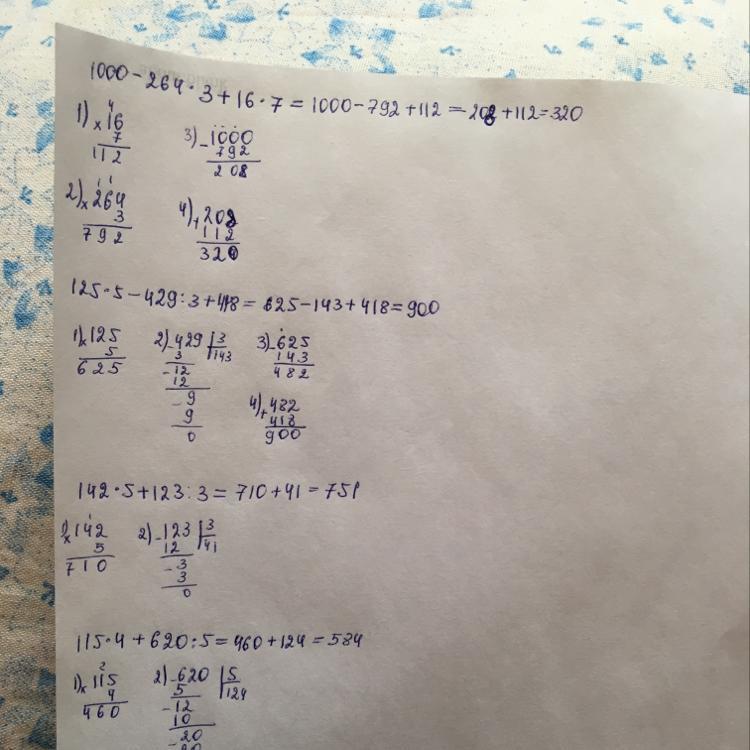 1000-264·3+16·7=1000-792+112=208+112=320
1) 4
×16
7
112
3) -1000
792
208
2) 11
×264
3
792
4) +208
112
320
125·5-429:3+418=625-143+418=900
1) ×125
5
625
2) -429 | 3
3 143
-12
12
-9
9
0
3) -625
143
482
4) +482
418
900
142·5+123:3=710+41=751
1) ×142
5
710
2) -123 | 3
12 41
-3
3
0
115·4+620:5=460+124=584
1) 2
×115
4
460
2) -620 | 5
5 124
-12
10
-20
20